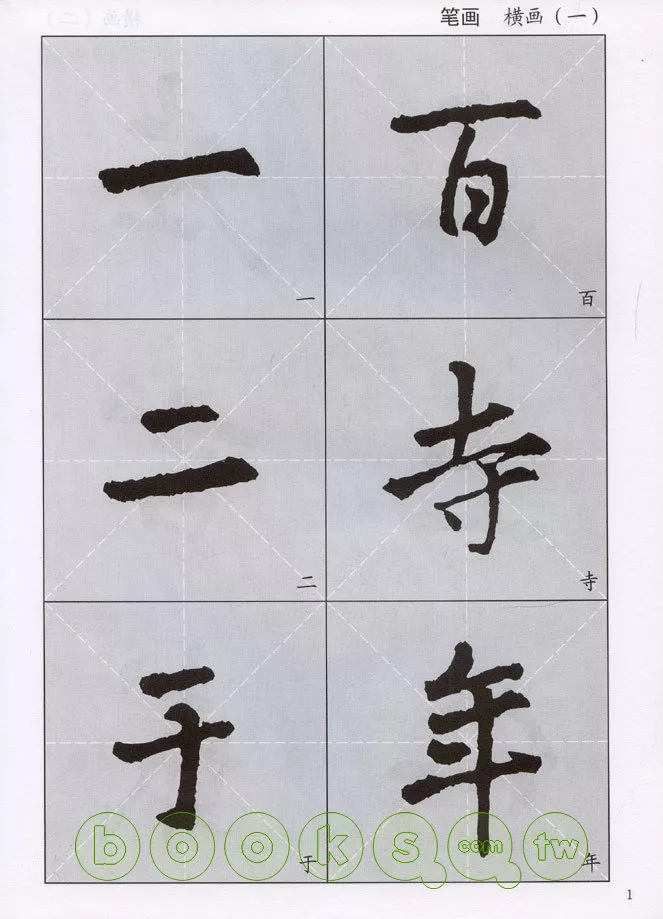 笔画 横画(一)
一 百
一 百
二 寺
二 寺
于 年
于 年
books.com.tw
1